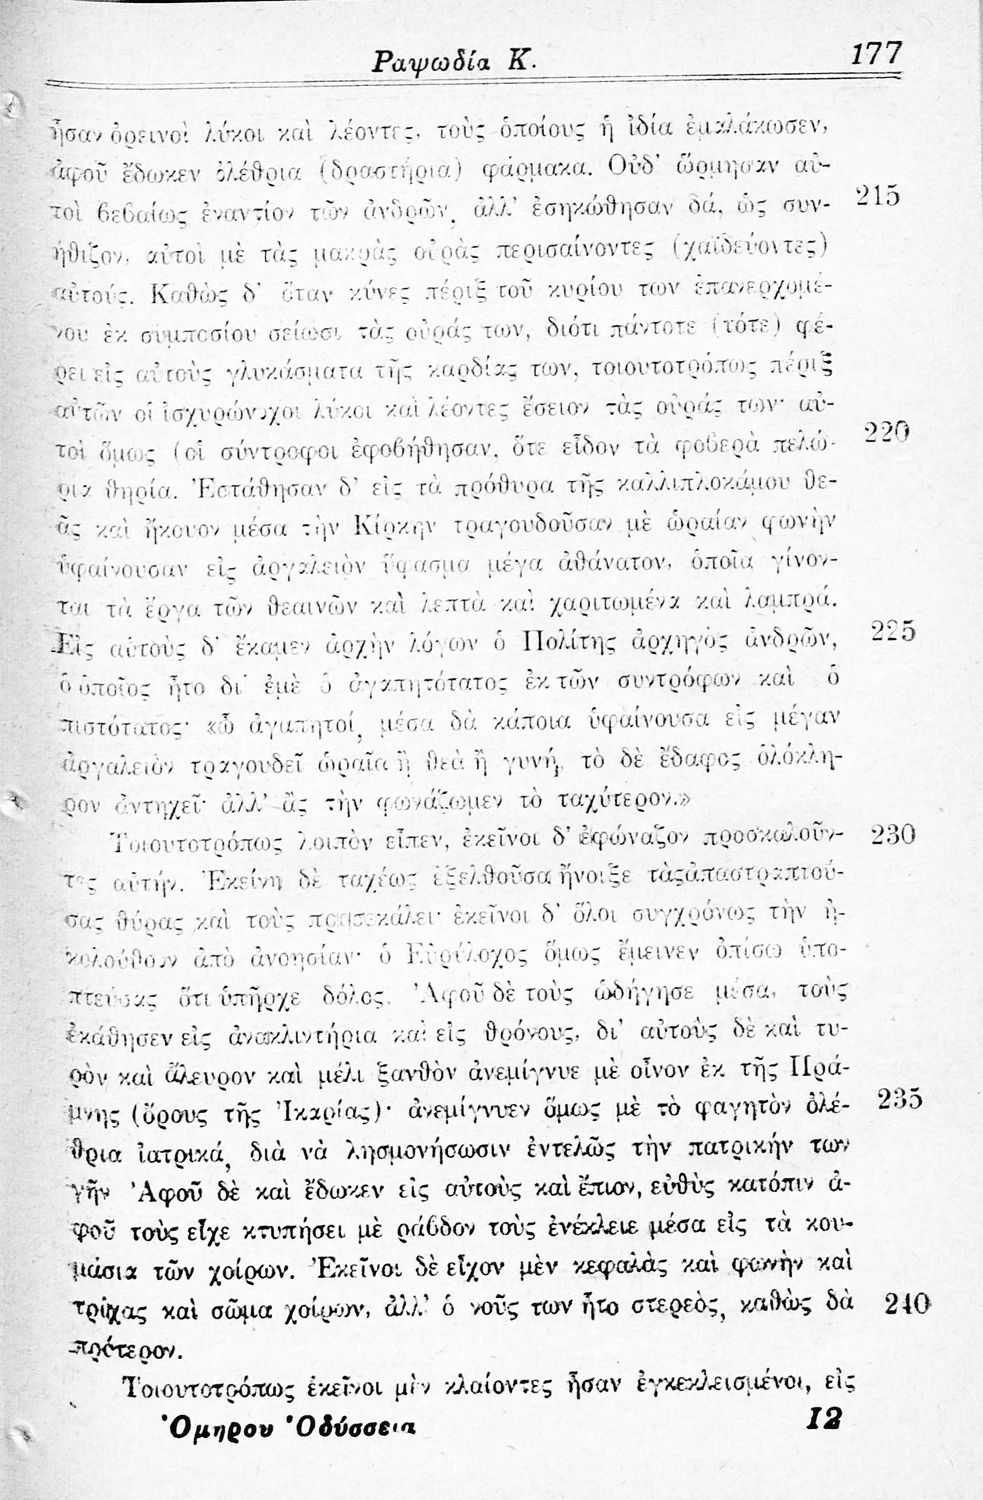 Ραψωδία Κ.
177
ἦσαν ὀρεινοὶ λύκοι καὶ λέοντες, τοὺς ὁποίους ἡ ἰδία ἐμαλάκωσεν,
ἀφοῦ ἔδωκεν ὀλέθρια (δραστήρια) φάρμακα. Οὐδ' ὥρμησαν αὐ-
τοὶ βεβαίως ἐναντίον τῶν ἀνδρῶν, ἀλλ' ἐσηκώθησαν δά, ὡς συν-
215
ήθιζον, αὐτοὶ μὲ τὰς μακρὰς οὐρὰς περισαίνοντες (χαϊδεύοντες)
αὐτούς. Καθὼς δ' ὅταν κύνες πέριξ τοῦ κυρίου των ἐπανερχομέ-
νου ἐκ συμποσίου σείωσι τὰς οὐράς των, διότι πάντοτε (τότε) φέ-
ρει εἰς αὐτοὺς γλυκάσματα τῆς καρδίας των, τοιουτοτρόπως πέριξ
αὐτῶν οἱ ἰσχυρώνυχοι λύκοι καὶ λέοντες ἔσειον τὰς οὐράς των· αὐ-
τοὶ ὅμως (οἱ σύντροφοι ἐφοβήθησαν, ὅτε εἶδον τὰ φοβερὰ πελώ-
220
ρια θηρία. Ἐστάθησαν δ' εἰς τὰ πρόθυρα τῆς καλλιπλοκάμου θε-
ᾶς καὶ ἤκουον μέσα τὴν Κίρκην τραγουδοῦσαν μὲ ὡραίαν φωνὴν
ὑφαίνουσαν εἰς ἀργαλειὸν ὕφασμα μέγα ἀθάνατον, ὁποῖα γίνον-
ται τὰ ἔργα τῶν θεαινῶν καὶ λεπτὰ καὶ χαριτωμένα καὶ λαμπρά.
Εἰς αὐτοὺς δ' ἔκαμεν ἀρχὴν λόγων ὁ Πολίτης ἀρχηγὸς ἀνδρῶν,
225
ὁ ὁποῖος ἦτο δι' ἐμὲ ὁ ἀγαπητότατος ἐκ τῶν συντρόφων καὶ ὁ
πιστότατος· «ὦ ἀγαπητοί, μέσα δὰ κάποια ὑφαίνουσα εἰς μέγαν
ἀργαλειὸν τραγουδεῖ ὡραῖα ἢ θεὰ ἢ γυνή, τὸ δὲ ἔδαφος ὁλόκλη-
ρον ἀντηχεῖ· ἀλλ' ἂς τὴν φωνάζωμεν τὸ ταχύτερον.»
Τοιουτοτρόπως λοιπὸν εἶπεν, ἐκεῖνοι δ' ἐφώναζον προσκαλοῦν-
230
τες αὐτήν. Ἐκείνη δὲ ταχέως ἐξελθοῦσα ἤνοιξε τὰς ἀπαστραπτού-
σας θύρας καὶ τοὺς προσεκάλει· ἐκεῖνοι δ' ὅλοι συγχρόνως τὴν ἠ-
κολούθουν ἀπὸ ἀνοησίαν· ὁ Εὐρίλοχος ὅμως ἔμεινεν ὀπίσω ὑπο-
πτεύσας ὅτι ὑπῆρχε δόλος. Ἀφοῦ δὲ τοὺς ὡδήγησε μέσα, τοὺς
ἐκάθησεν εἰς ἀνακλιντήρια καὶ εἰς θρόνους, δι' αὐτοὺς δὲ καὶ τυ-
ρὸν καὶ ἄλευρον καὶ μέλι ξανθὸν ἀνεμίγνυε μὲ οἶνον ἐκ τῆς Πρά-
μνης (ὄρους τῆς Ἰκαρίας)· ἀνεμίγνυεν ὅμως μὲ τὸ φαγητὸν ὀλέ-
235
θρια ἰατρικά, διὰ νὰ λησμονήσωσιν ἐντελῶς τὴν πατρικήν των
γῆν Ἀφοῦ δὲ καὶ ἔδωκεν εἰς αὐτοὺς καὶ ἔπιον, εὐθὺς κατόπιν ἀ-
φοῦ τοὺς εἶχε κτυπήσει μὲ ράβδον τοὺς ἐνέκλειε μέσα εἰς τὰ κου-
μάσια τῶν χοίρων. Ἐκεῖνοι δὲ εἶχον μὲν κεφαλὰς καὶ φωνὴν καὶ
τρίχας καὶ σῶμα χοίρων, ἀλλ' ὁ νοῦς των ἦτο στερεὸς, καθὼς δὰ
240
πρότερον.
Τοιουτοτρόπως ἐκεῖνοι μὲν κλαίοντες ἦσαν ἐγκεκλεισμένοι, εἰς
Ὁμηρου Ὀδύσσεια
12